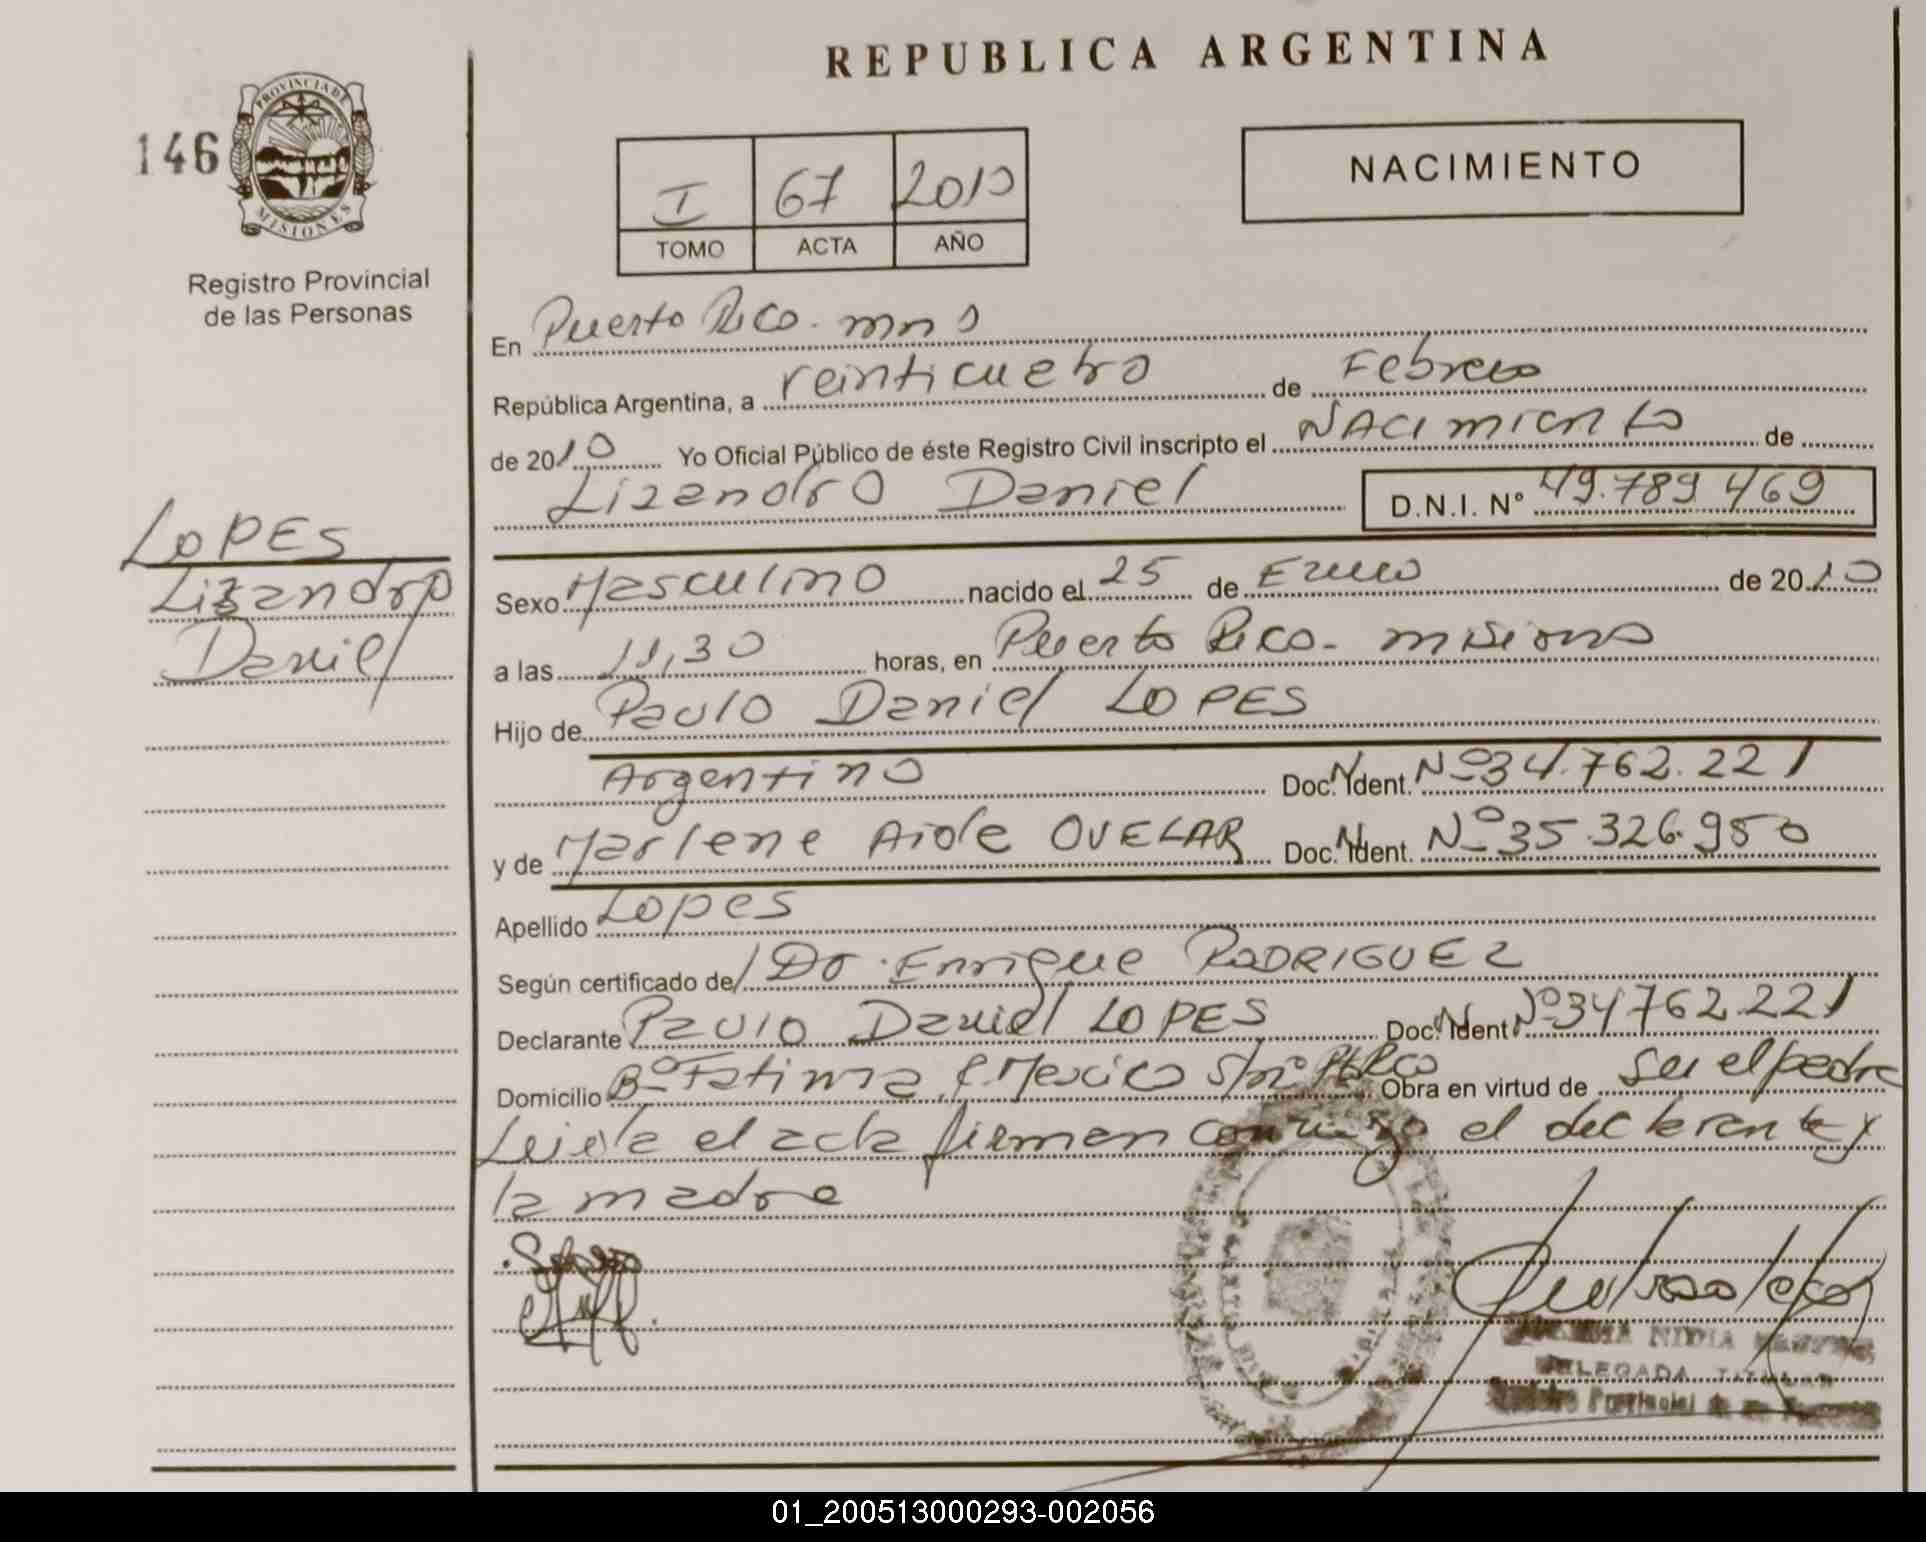 REPUBLICA ARGENTINA
146
PROVINCIA DE
MISIONES
Registro Provincial
de las Personas
I 67 2010
TOMO ACTA AÑO
NACIMIENTO
En Puerto Rico. mns
República Argentina, a veinticuatro de Febrero
de 2010 Yo Oficial Público de éste Registro Civil inscripto el NACIMIENTO de
Lizandro Daniel D.N.I. N° 49.789.469
LOPES
Lizandro
Daniel
Sexo Masculino nacido el 25 de Enero de 2010
a las 11,30 horas, en Puerto Rico - misiones
Hijo de Paulo Daniel LOPES
Argentino Doc. Ident. Nº 34.762.221
y de Marlene Aide OVELAR Doc. Ident. Nº 35.326.950
Apellido Lopes
Según certificado de Dr. Enrique RODRIGUEZ
Declarante Paulo Daniel LOPES Doc. Ident Nº 34762.221
Domicilio Bº Fatima C. Mexico s/nº Pto Rco Obra en virtud de ser el padre
Leida el acta firman conmigo el declarante y
la madre
NIDIA
DELEGADA TITULAR
Registro Provincial de las Personas
01_200513000293-002056